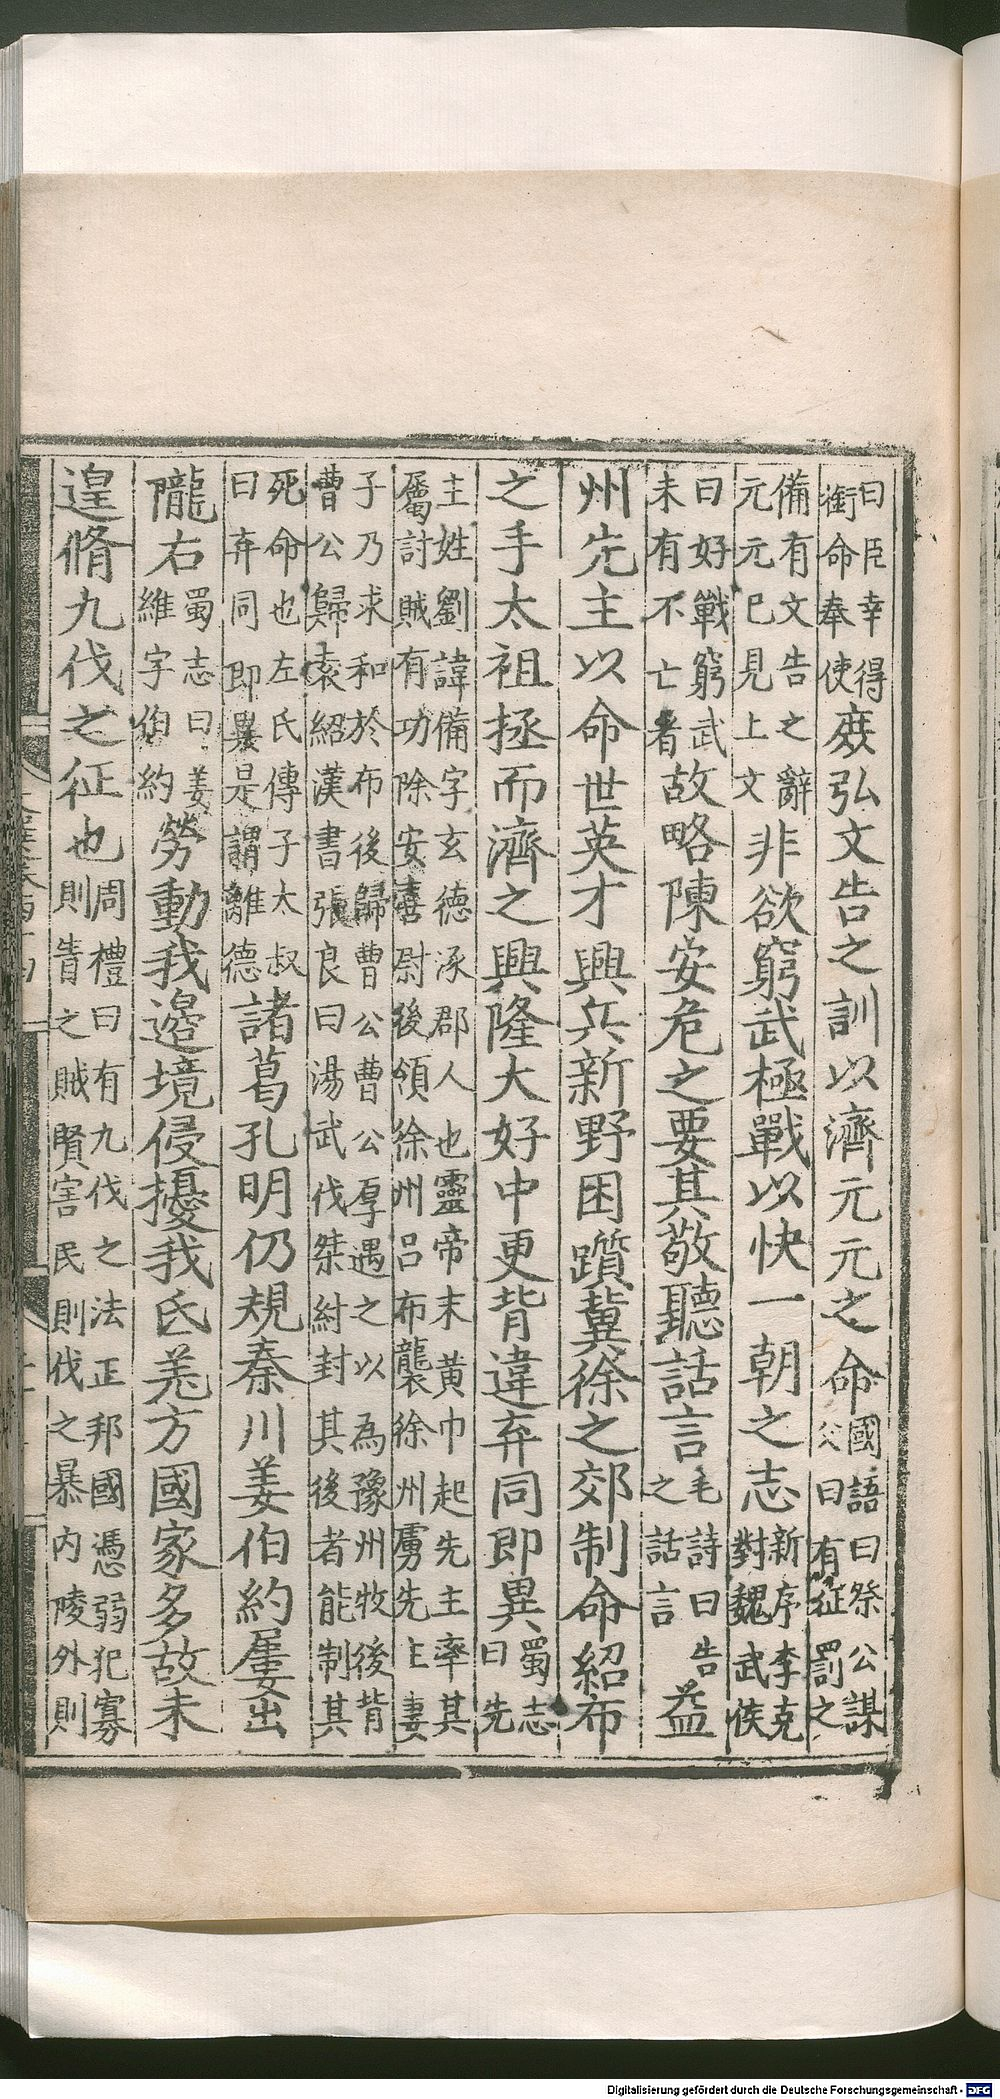 曰臣幸得銜命奉使庶弘文告之訓以濟元元之命國語曰祭公謀父曰有征罰之
備有文告之辭元元已見上文非欲窮武極戰以快一朝之志新序李克對魏武侯
曰好戰窮武未有不亡者故略陳安危之要其敬聽話言毛詩曰告之話言益
州先主以命世英才興兵新野困躓冀徐之郊制命紹布
之手太祖拯而濟之興隆大好中更背違弃同即異蜀志曰先
主姓劉諱備字玄德涿郡人也靈帝末黄巾起先主率其屬討賊有功除安喜尉後領徐州吕布襲徐州虜先主妻
子乃求和於布後歸曹公曹公厚遇之以為豫州牧後背曹公歸袁紹漢書張良曰湯武伐桀紂封其後者能制其
死命也左氏傳子太叔曰弃同即異是謂離德諸葛孔明仍規秦川姜伯約屢出
隴右蜀志曰姜維字伯約勞動我邉境侵擾我氐羌方國家多故未
遑脩九伐之征也周禮曰有九伐之法正邦國憑弱犯寡則眚之賊賢害民則伐之暴内陵外則
Digitalisierung gefördert durch die Deutsche Forschungsgemeinschaft - DFG